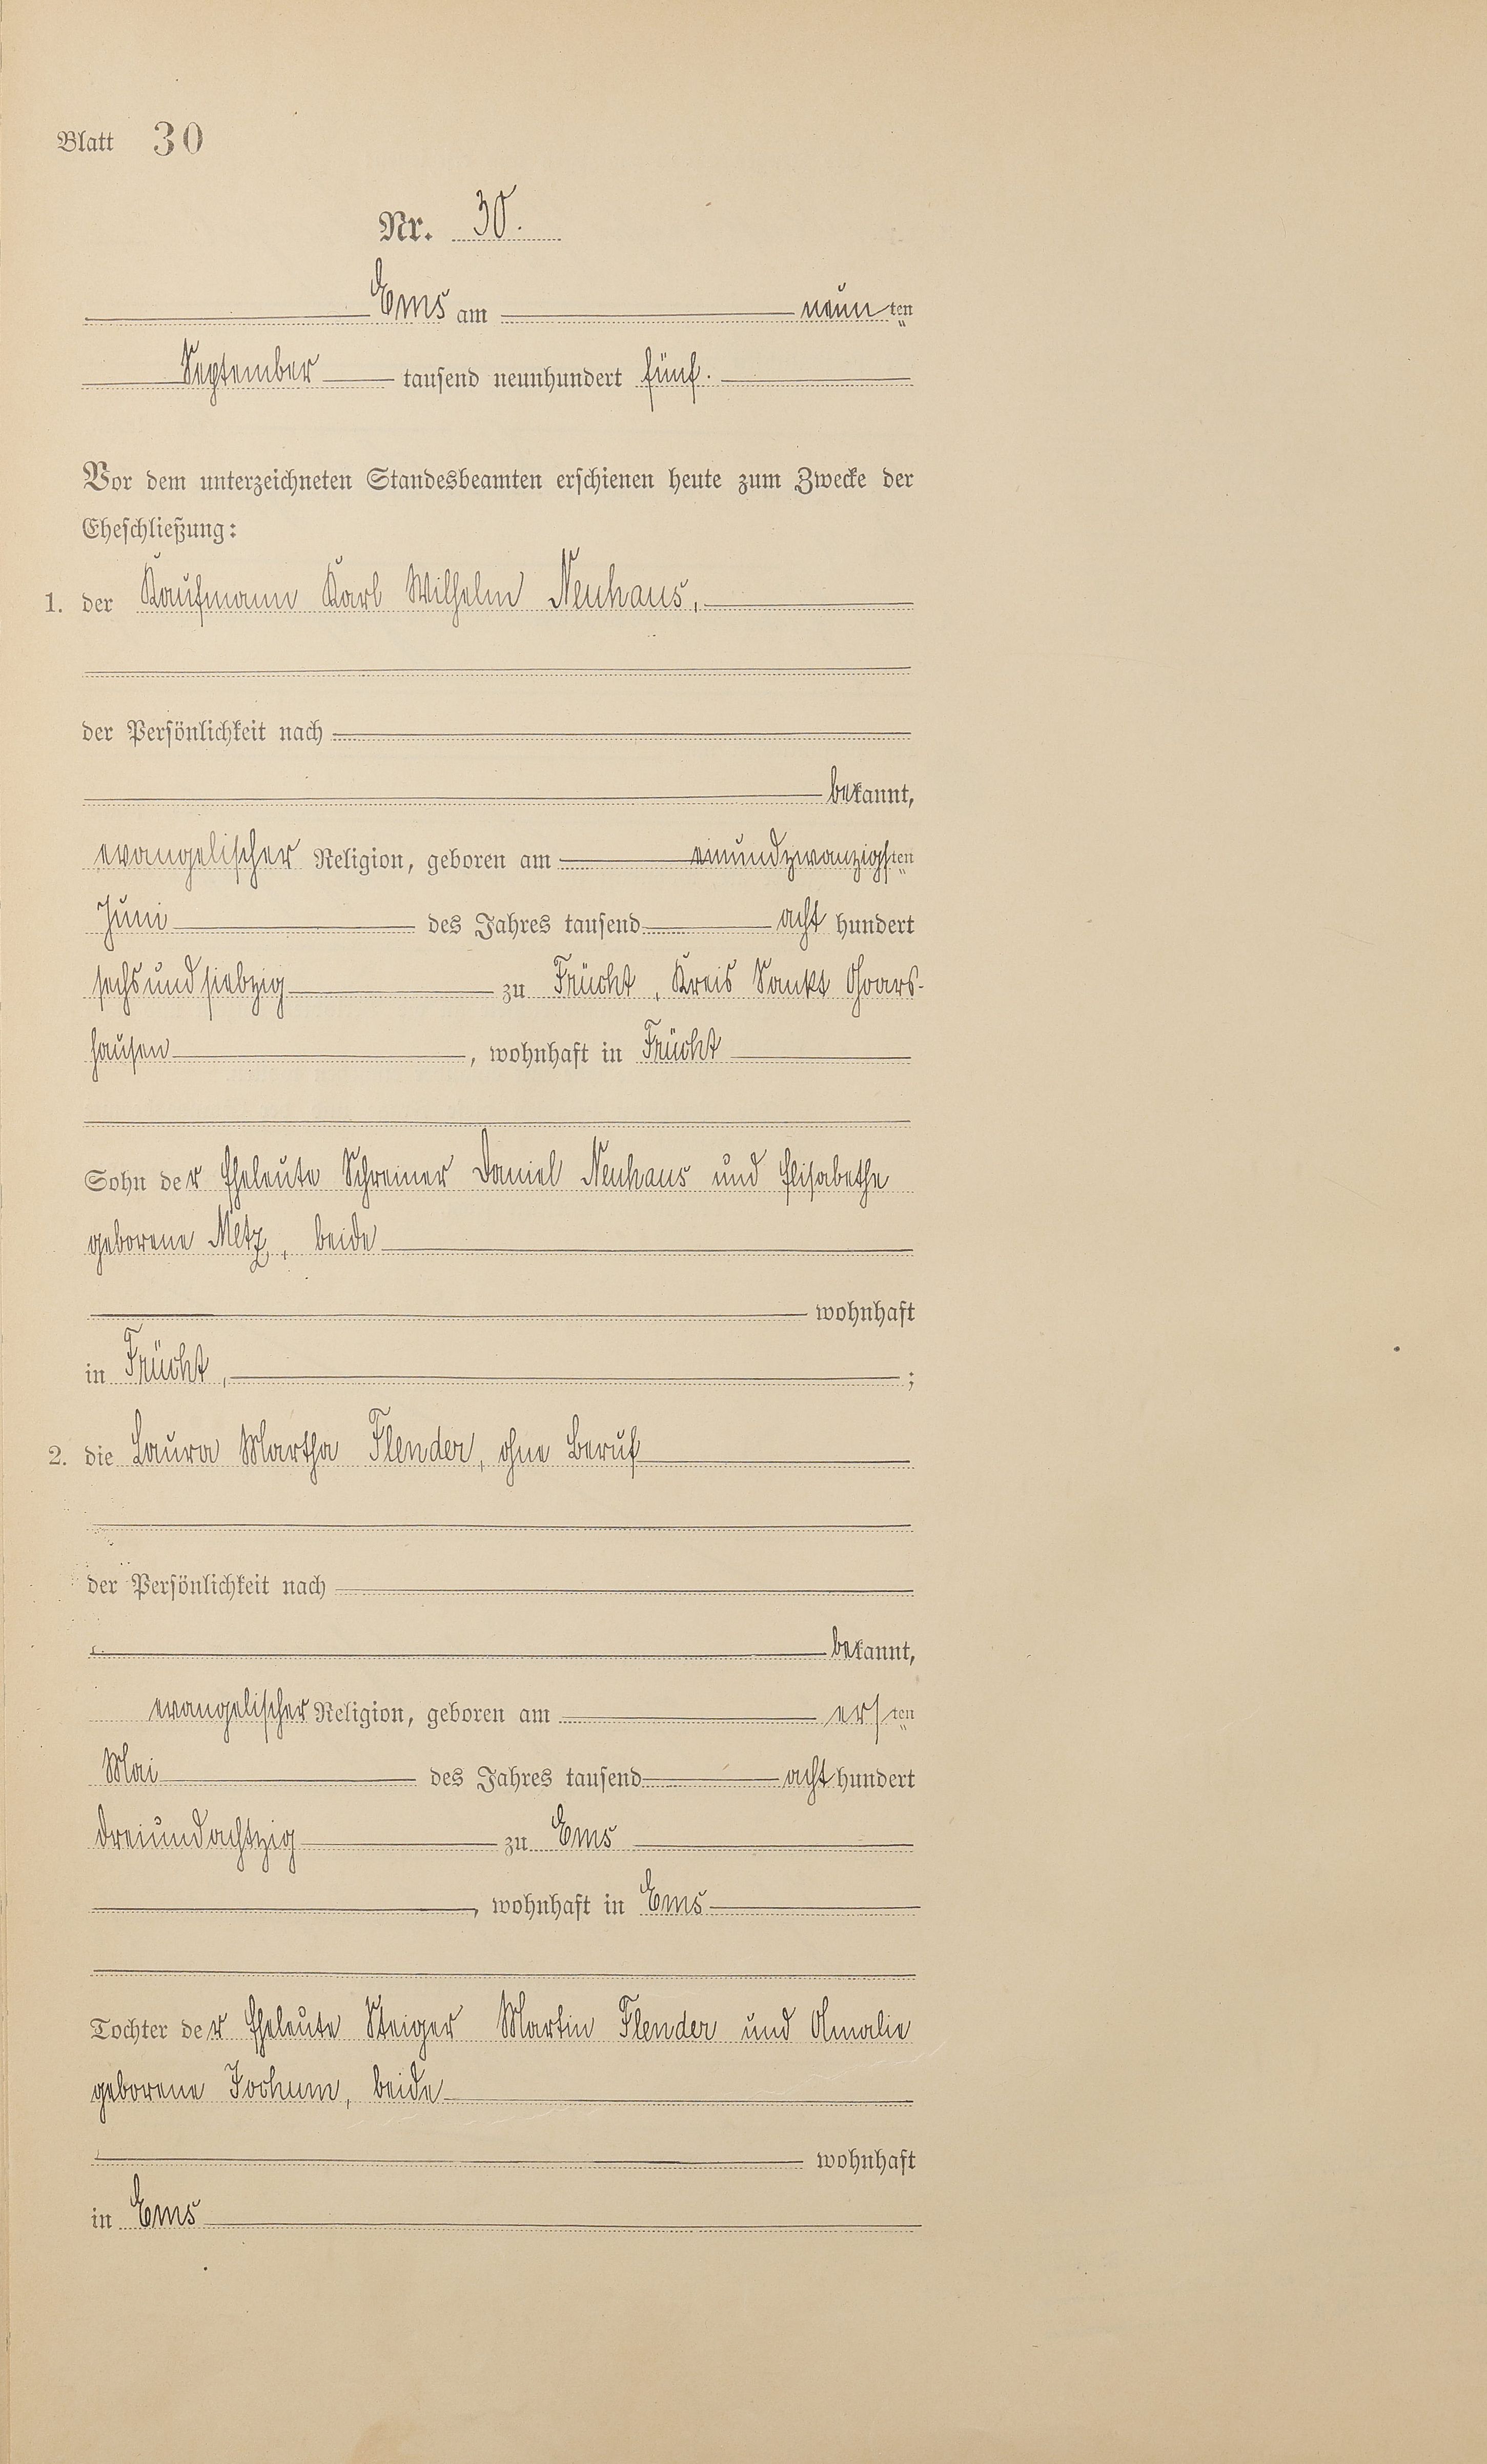 Blatt 30
Nr. 30.
Ems am neunten
September tausend neunhundert fünf.
Vor dem unterzeichneten Standesbeamten erschienen heute zum Zwecke der
Eheschließung:
1. der Kaufmann Karl Wilhelm Neuhaus,
der Persönlichkeit nach
bekannt,
evangelischer Religion, geboren am einundzwanzigsten
Juni des Jahres tausend acht hundert
sechsundsiebzig zu Frücht, Kreis Sankt Goars-
hausen, wohnhaft in Frücht
Sohn der Eheleute Schreiner Daniel Neuhaus und Elisabethe
geborene Metz, beide
wohnhaft
in Frücht, ;
2. die Laura Martha Flender, ohne Beruf
der Persönlichkeit nach
bekannt,
evangelischer Religion, geboren am ersten
Mai des Jahres tausend acht hundert
dreiundachtzig zu Ems
, wohnhaft in Ems
Tochter der Eheleute Steiger Martin Flender und Amalie
geborene Jochum, beide
wohnhaft
in Ems